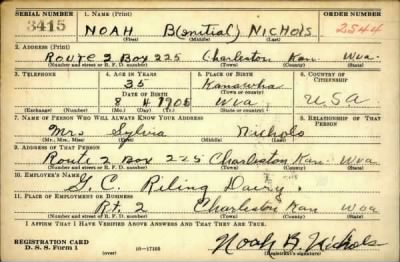 SERIAL NUMBER 1. NAME (Print) ORDER NUMBER
3415 NOAH B(initial) NICHOLS 2544
(First) (Middle) (Last)
2. ADDRESS (Print)
Route 2 Box 225 Charleston Kan Wva
(Number and street or R. F. D. number) (Town) (County) (State)
3. TELEPHONE 4. AGE IN YEARS 5. PLACE OF BIRTH 6. COUNTRY OF CITIZENSHIP
35 Kanawha
DATE OF BIRTH (Town or county)
8 4 1905 Wva USA
(Exchange) (Number) (Mo.) (Day) (Yr.) (State or country)
7. NAME OF PERSON WHO WILL ALWAYS KNOW YOUR ADDRESS 8. RELATIONSHIP OF THAT PERSON
Mrs Sylvia Nichols
(Mr., Mrs., Miss) (First) (Middle) (Last)
9. ADDRESS OF THAT PERSON
Route 2 Box 225 Charleston Kan Wva
(Number and street or R. F. D. number) (Town) (County) (State)
10. EMPLOYER'S NAME
G. C. Riling Dairy.
11. PLACE OF EMPLOYMENT OR BUSINESS
Rt. 2 Charleston Kan Wva
(Number and street or R. F. D. number) (Town) (County) (State)
I AFFIRM THAT I HAVE VERIFIED ABOVE ANSWERS AND THAT THEY ARE TRUE.
REGISTRATION CARD
D. S. S. Form 1 16—17105 Noah B. Nichols
(Registrant's signature)